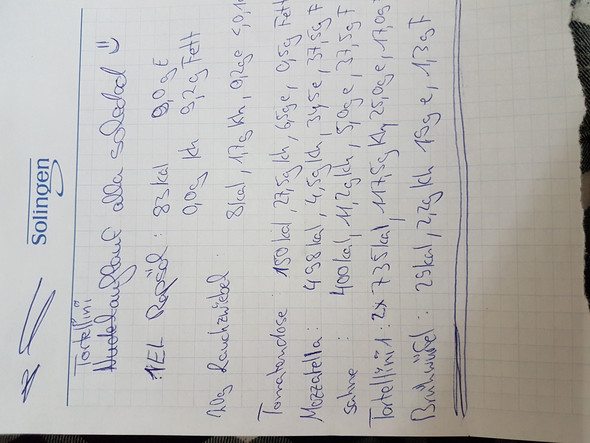 Solingen
Tortellini
Nudelauflauf alla soledad
1EL Rapsöl : 83kal 0,0g E
0,0g Kh 9,2g Fett
20g Lauchzwiebel : 8kal, 1,7g Kh, 0,2g e <0,1
Tomatendose : 150kal, 27,5g Kh, 6,5g e, 0,5g Fett
Mozzarella : 498kal, 4,5g Kh, 34,5e, 37,5g F
Sahne : 400kal, 11,2g Kh, 5,0g e, 37,5g F
Tortellini 1 : 2x 735kal, 117,5g Kh, 25,0g e, 17,0g
Brühwürfel : 29kal, 2,2g Kh 1,9g e, 1,3g F